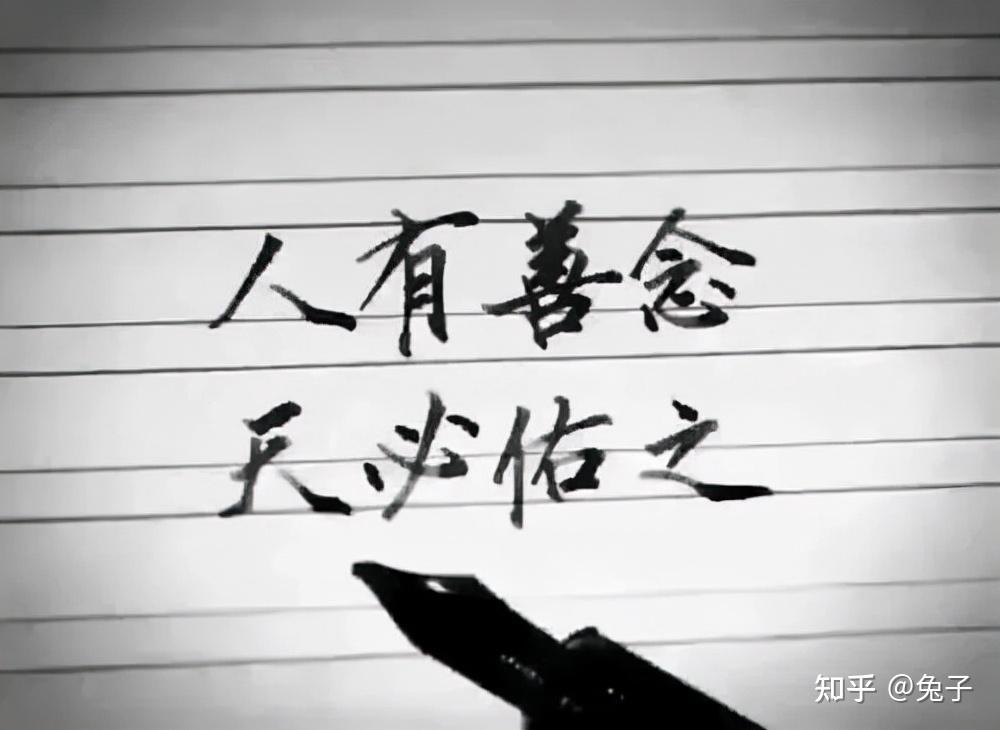 人有善念
天必佑之
知乎 @兔子